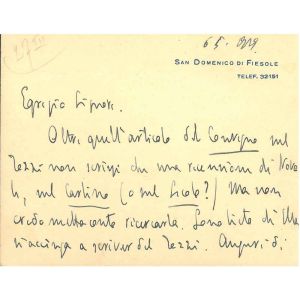 6 5.
SAN DOMENICO DI FIESOLE
TELEF. 32151
Egregio Signore.
Oltre quell'articolo del Convegno sul
Tozzi non scrissi che una recensione di Novel
le, sul (o sul Secolo?) Ma non
credo metta conto ricercarla. Sono lieto di
s'accinga a scrivere del Tozzi. Auguri di